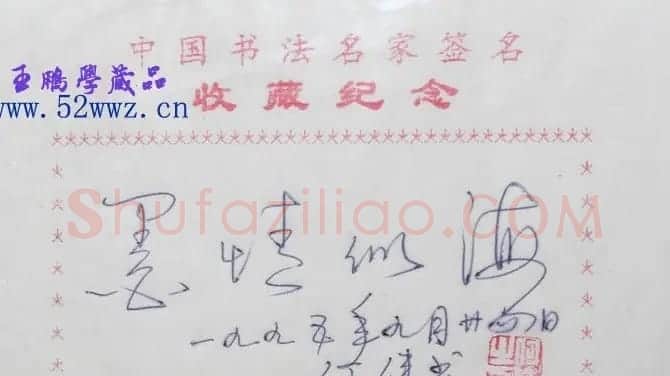 中国书法名家签名
王鹏學藏品
收藏纪念
www.52wwz.cn
Shufaziliao.COM
墨情似海
一九九五年九月廿